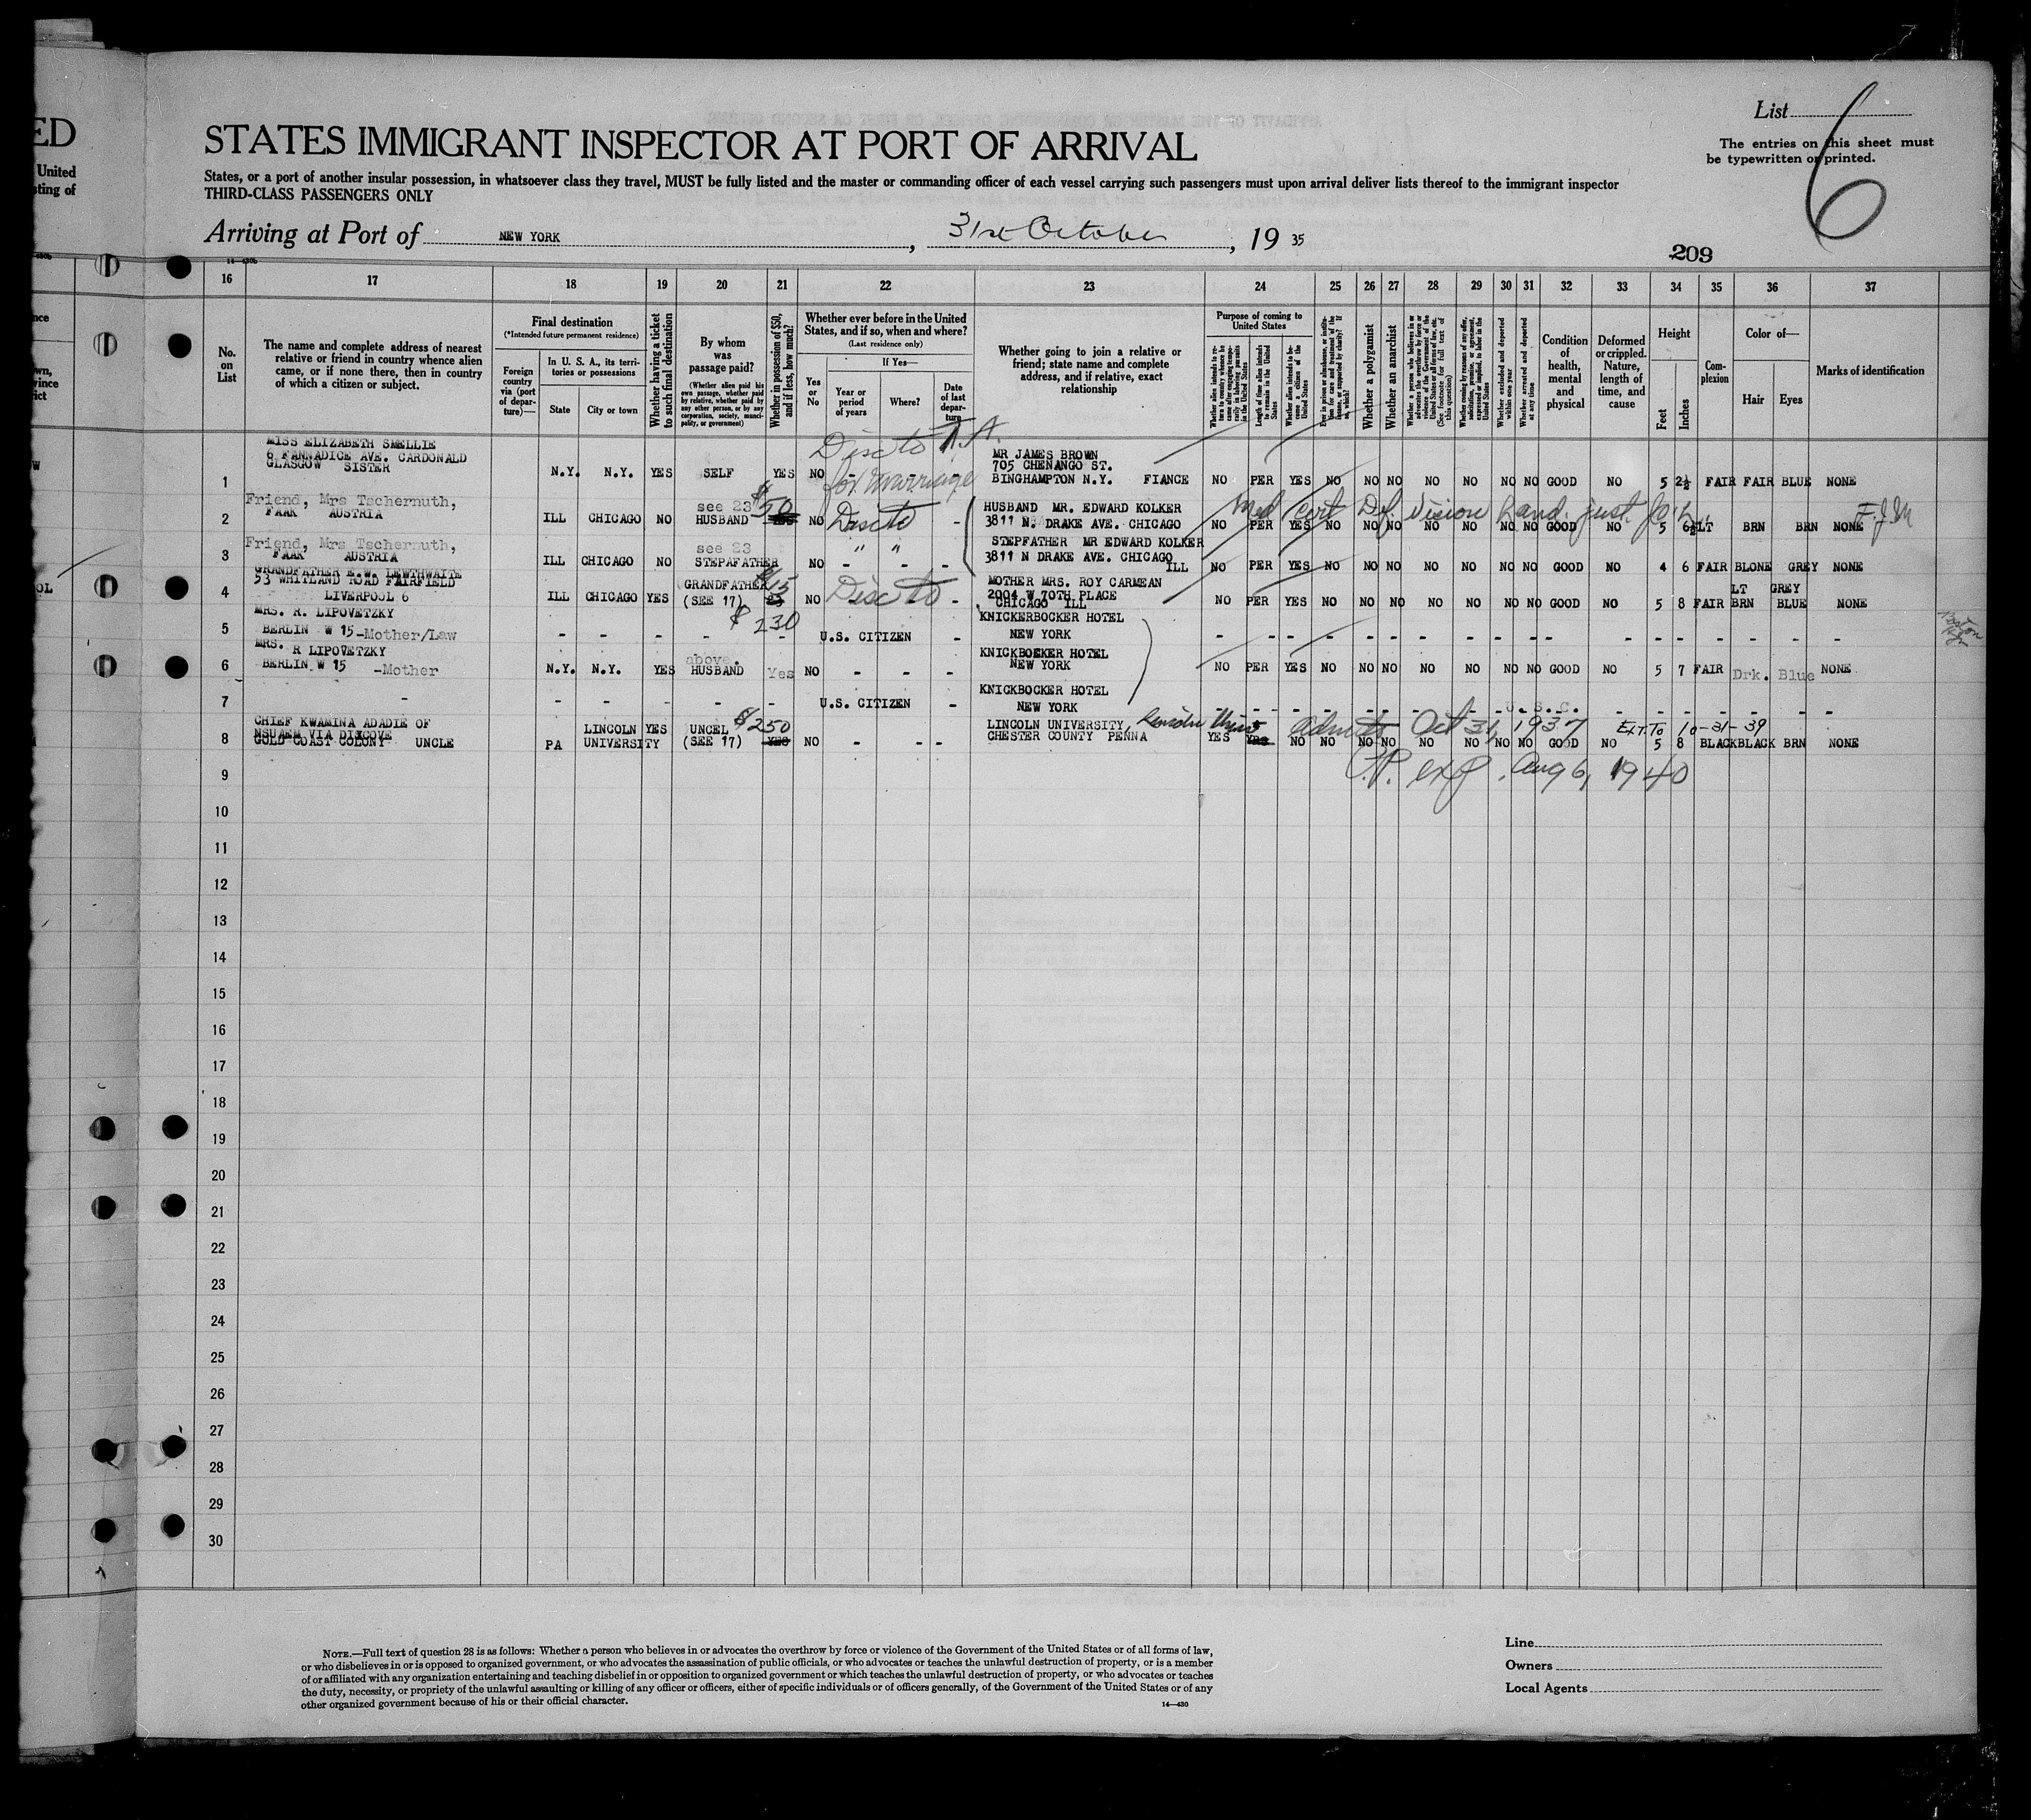 ED
United
sting of
List 6
The entries on this sheet must
be typewritten or printed.
STATES IMMIGRANT INSPECTOR AT PORT OF ARRIVAL
States, or a port of another insular possession, in whatsoever class they travel, MUST be fully listed and the master or commanding officer of each vessel carrying such passengers must upon arrival deliver lists thereof to the immigrant inspector
THIRD-CLASS PASSENGERS ONLY
Arriving at Port of NEW YORK, 31st October, 19 35
209
16 17 18 19 20 21 22 23 24 25 26 27 28 29 30 31 32 33 34 35 36 37
No. on List
The name and complete address of nearest
relative or friend in country whence alien
came, or if none there, then in country
of which a citizen or subject.
Final destination
(*Intended future permanent residence)
Foreign country via (port of departure)—
In U. S. A., its territories or possessions
State
City or town
Whether having a ticket to such final destination
By whom was passage paid?
(Whether alien paid his own passage, whether paid by relative, whether paid by any other person, or by any corporation, society, municipality, or government)
Whether in possession of $50, and if less, how much?
Whether ever before in the United
States, and if so, when and where?
(Last residence only)
Yes or No
If Yes—
Year or period of years
Where?
Date of last departure
Whether going to join a relative or
friend; state name and complete
address, and if relative, exact
relationship
Purpose of coming to United States
Length of time alien intends to remain in the United States
Whether alien intends to become a citizen of the United States
Whether a polygamist
Whether an anarchist
Whether arrested and deported at any time
Condition of health, mental and physical
Deformed or crippled. Nature, length of time, and cause
Height
Feet
Inches
Complexion
Color of—
Hair
Eyes
Marks of identification
Disc to
for marriage
1 MISS ELIZABETH SMELLIE
6 FANNADICE AVE. CARDONALD
GLASGOW SISTER
N.Y. N.Y. YES SELF YES NO - - -
MR JAMES BROWN
705 CHENANGO ST.
BINGHAMPTON N.Y. FIANCE
NO PER YES NO NO NO NO NO NO NO GOOD NO 5 2½ FAIR FAIR BLUE NONE
2 Friend, Mrs Tschernuth,
FAAK AUSTRIA
ILL CHICAGO NO see 23 HUSBAND $50 NO Disc to -
HUSBAND MR. EDWARD KOLKER
3811 N. DRAKE AVE. CHICAGO
Med Cert Def Vision
NO PER YES NO NO NO NO NO NO NO GOOD NO 5 6½ LT BRN BRN NONE
3 Friend, Mrs Tschernuth,
FAAK AUSTRIA
ILL CHICAGO NO see 23 STEPAFATHER NO " " - - -
STEPFATHER MR EDWARD KOLKER
3811 N DRAKE AVE. CHICAGO
ILL
NO PER YES NO NO NO NO NO NO NO GOOD NO 4 6 FAIR BLONE GREY NONE
4 GRANDFATHER E.W. LEWTHWAITE
53 WHITLAND ROAD FAIRFIELD
LIVERPOOL 6
ILL CHICAGO YES GRANDFATHER (SEE 17) $15 NO Disc to -
MOTHER MRS. ROY CARMEAN
2004 W 70TH PLACE
CHICAGO ILL
NO PER YES NO NO NO NO NO NO NO GOOD NO 5 8 FAIR LT BRN GREY BLUE NONE
5 MRS. R. LIPOVETZKY
BERLIN W 15-Mother/Law
- - - - $230 U.S. CITIZEN -
KNICKERBOCKER HOTEL
NEW YORK
6 MRS. R LIPOVETZKY
BERLIN W 15 -Mother
N.Y. N.Y. YES above. HUSBAND Yes NO - - -
KNICKBOEKER HOTEL
NEW YORK
NO PER YES NO NO NO NO NO NO NO GOOD NO 5 7 FAIR Drk. Blue NONE
7 - - - - - - U.S. CITIZEN -
KNICKBOCKER HOTEL
NEW YORK
U.S.C.
8 CHIEF KWAMINA ADADIE OF
NSUAEM VIA DIXCOVE
GOLD COAST COLONY UNCLE
PA LINCOLN UNIVERSITY YES UNCEL (SEE 17) $250 YES NO - - -
LINCOLN UNIVERSITY,
CHESTER COUNTY PENNA
admitted Oct 31, 1937 EXT. TO 10-31-39
YES YRS NO NO NO NO NO NO NO NO GOOD NO 5 8 BLACK BLACK BRN NONE
9 P.P. exp. Aug 6, 1940
10
11
12
13
14
15
16
17
18
19
20
21
22
23
24
25
26
27
28
29
30
NOTE.—Full text of question 28 is as follows: Whether a person who believes in or advocates the overthrow by force or violence of the Government of the United States or of all forms of law,
or who disbelieves in or is opposed to organized government, or who advocates the assassination of public officials, or who advocates or teaches the unlawful destruction of property, or is a member
of or affiliated with any organization entertaining and teaching disbelief in or opposition to organized government or which teaches the unlawful destruction of property, or who advocates or teaches
the duty, necessity, or propriety of the unlawful assaulting or killing of any officer or officers, either of specific individuals or of officers generally, of the Government of the United States or of any
other organized government because of his or their official character.
14—430
Line
Owners
Local Agents